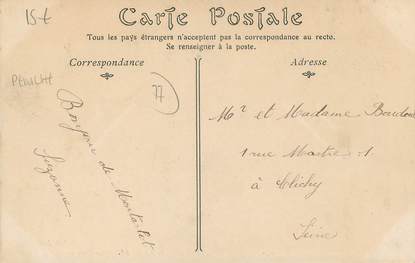 15-t
Carte Postale
Tous les pays étrangers n'acceptent pas la correspondance au recto.
Se renseigner à la poste.
Correspondance
Adresse
77
Bonjour de Montarlot
Suzanne
Mr et Madame
1 rue
à Clichy
Seine